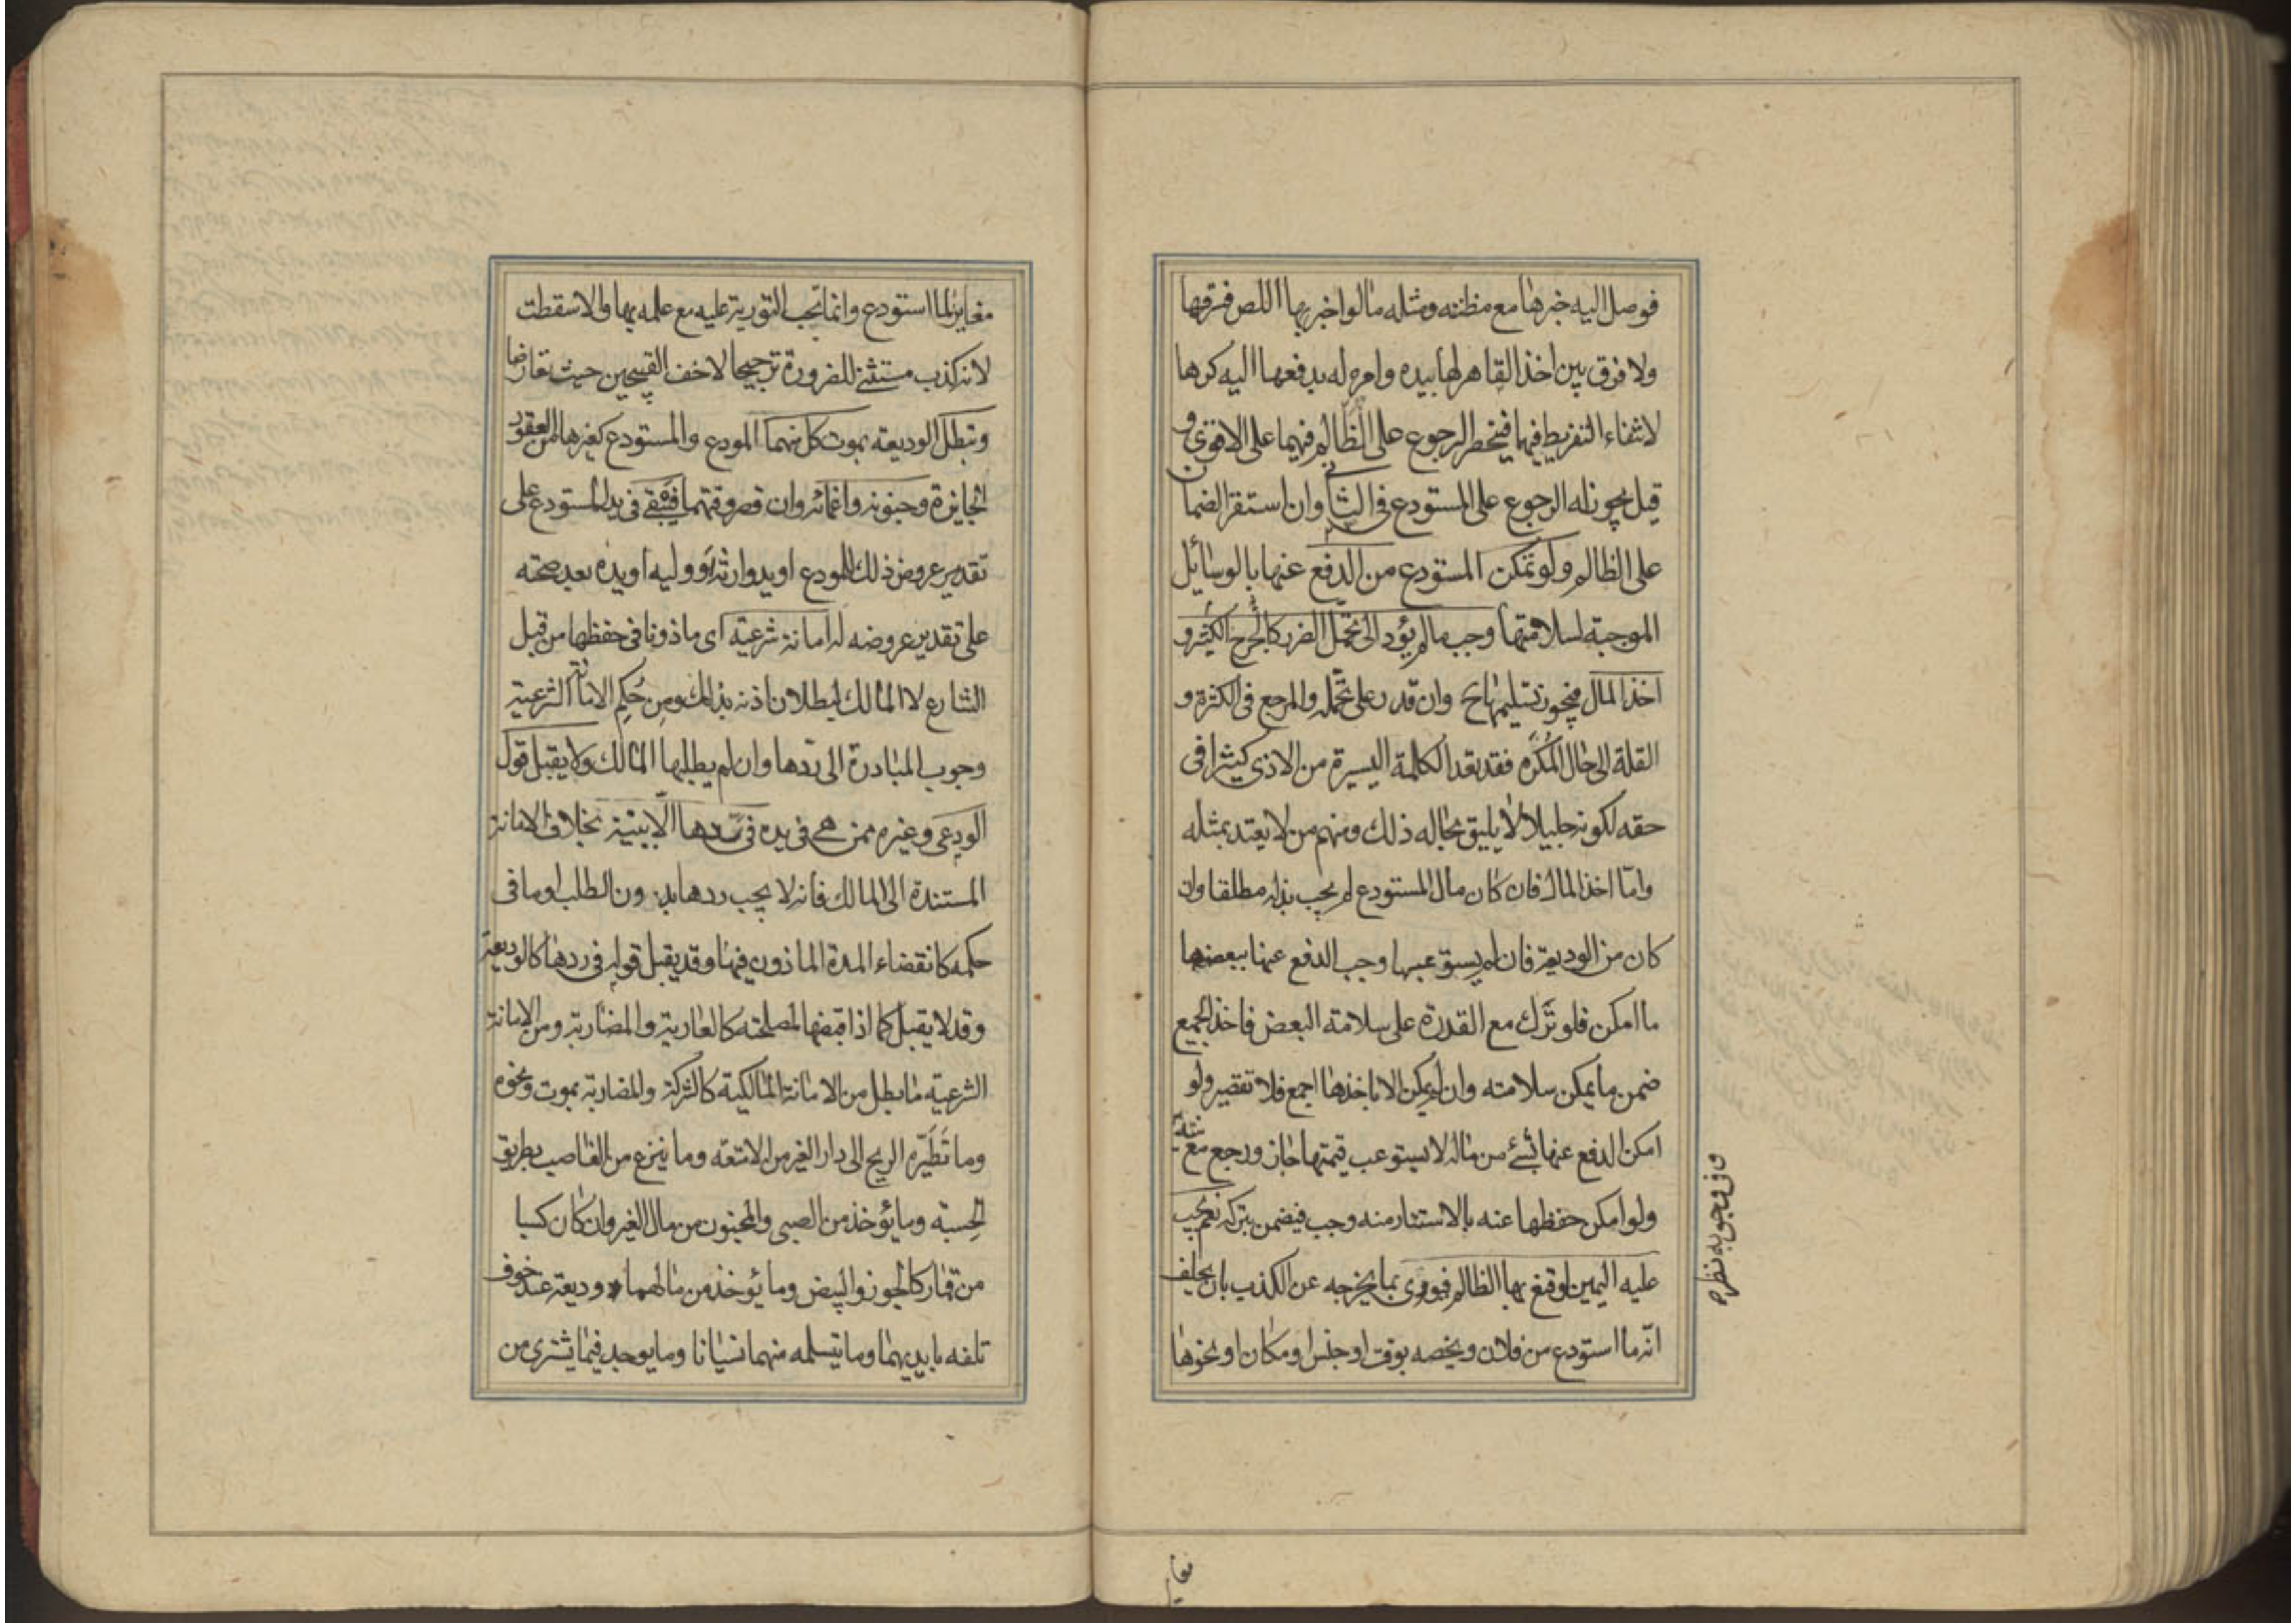 فوصل اليه خبرها مع مظنته ومثله ما لو اخبر بها اللص فسرقها
ولا فرق بين اخذ القاهر لها بيده وامره له بدفعها اليه كرها
لانتفاء التفريط فيهما فينحصر الرجوع على الظالم فيهما على الاقوى و
قيل يجوز له الرجوع على المستودع فى الثانى وان استقر الضمان
على الظالم ولو تمكن المستودع من الدفع عنها بالوسائل
الموجبة لسلامتها وجب ما لم يؤد الى تحمل الضرر كالجرح الكثير و
اخذ المال فيجوز تسليمها ح وان قدر على تحمله والمرجع فى الكثرة و
القلة الى حال المكره فقد تعد الكلمة اليسيرة من الاذى كثيرا فى
حقه لكونه جليلا لا يليق بحاله ذلك ومنهم من لا يعتد بمثله
وامّا اخذ المال فان كان مال المستودع لم يجب بذله مطلقا وان
كان من الوديعة فان لم يستوعبها وجب الدفع عنها ببعضها
ما امكن فلو ترك مع القدرة على سلامة البعض فاخذ الجميع
ضمن ما يمكن سلامته وان لم يمكن الا باخذها اجمع فلا تقصير ولو
امكن الدفع عنها بشئ من ماله لا يستوعب قيمتها جاز ورجع مع نيته
ولو امكن حفظها عنه بالاستتار منه وجب فيضمن بتركه نعم يجب
عليه اليمين لو قنع بها الظالم فيورى بما يخرجه عن الكذب بان يحلف
انّه ما استودع من فلان ويخصه بوقت او جنس او مكان او نحوها
وفى وجوبه نظر
مغاير
مغاير لما استودع وانما تجب التورية عليه مع علمه بها والا سقطت
لانه كذب مستثنى للضرورة ترجيحا لاخف القبيحين حيث تعارضا
وتبطل الوديعة بموت كل منهما المودع والمستودع كغيرها من العقود
الجايزة وجنونه واغمائه وان قصر وقتهما فتبقى فى يد المستودع على
تقدير عروض ذلك للمودع او يد وارثه او وليه او يده بعد صحته
على تقدير عروضه له امانة شرعية اى ماذونا فى حفظها من قبل
الشارع لا المالك لبطلان اذنه بذلك ومن حُكم الامانة الشرعية
وجوب المبادرة الى ردها وان لم يطلبها المالك ولا يقبل قول
الودعى وغيره ممن هى فى يده فى ردها الّا ببينة بخلاف الامانة
المستندة الى المالك فانه لا يجب ردها بدون الطلب او ما فى
حكمه كانقضاء المدة الماذون فيها وقد يقبل قوله فى ردها كالوديعة
وقد لا يقبل كما اذا قبضها لمصلحته كالعارية والمضاربة ومن الامانة
الشرعية ما بطل من الامانة المالكية كالشركة والمضاربة بموت ونحوه
وما تَطَيَّره الريح الى دار الغير من الامتعة وما ينزع من الغاصب بطريق
الحِسبة وما يؤخذ من الصبى والمجنون من مال الغير وان كان كسبا
من قمار كالجوز والبيض وما يؤخذ من مالهما وديعة عند خوف
تلفه بايديهما وما يتسلمه منهما نسيانا وما يوجد فيما يشترى من